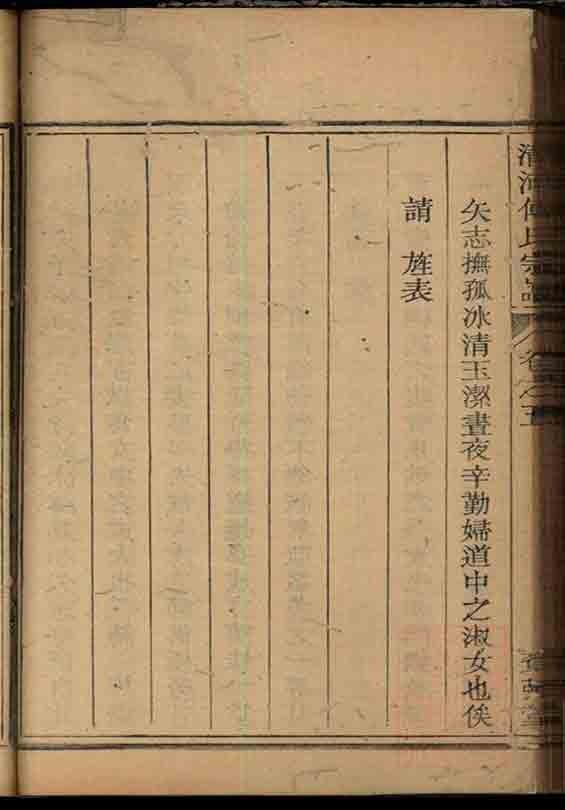 清河傅氏宗譜
卷之五
矢志撫孤冰清玉潔晝夜辛勤婦道中之淑女也俟
請 旌表